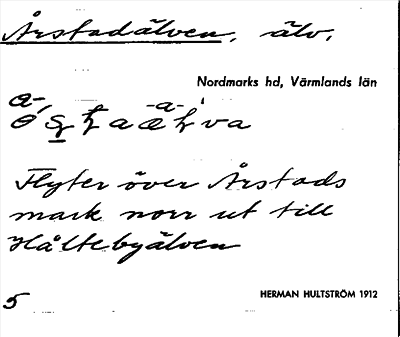 Årstadälven, älv.
Nordmarks hd, Värmlands län
Flyter över Årstads
mark norr ut till
Håltebyälven
5
HERMAN HULTSTRÖM 1912